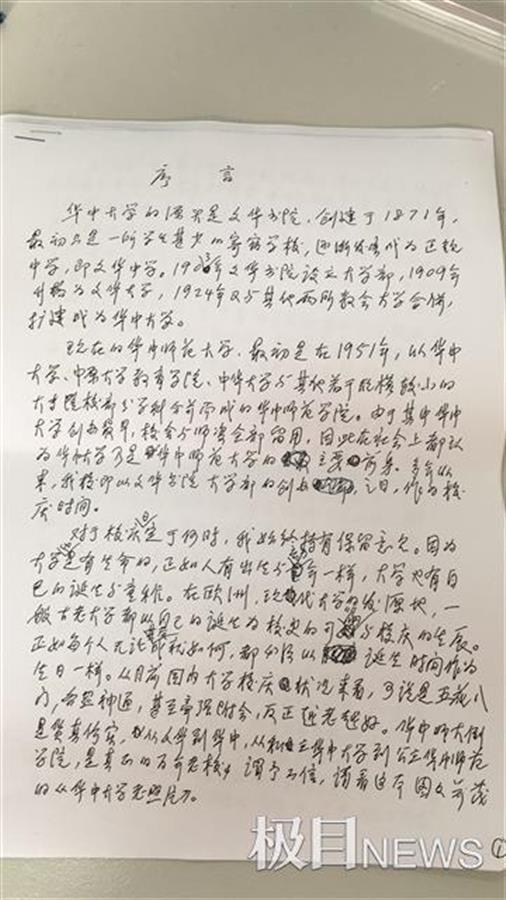 序 言
华中大学的源头是文华书院，创建于1871年，
最初只是一所学生甚少的寄宿学校，逐渐发展成为正规
中学，即文华中学。1903年文华书院设立大学部，1909年
升格为文华大学，1924年又与其他两所教会大学合併，
扩建成为华中大学。
现在的华中师范大学，最初是在1951年，以华中
大学、中原大学教育学院、中华大学与其他若干规模较小的
大专院校部分学科合并而成的华中师范学院。由于其中华中
大学创办最早，校舍与师资全部留用，因此在社会上都认
为华中大学乃是华中师范大学的主要前身。多年以
来，我校即以文华书院大学部的创办之日，作为校
庆时间。
对于校庆定于何时，我始终持有保留意见。因为
大学是有生命的，正如人有出生与童年一样，大学也有自
己的诞生与童稚。在欧洲，现代大学的发源地，一
般古老大学都以自己的诞生为校史的可与校庆的生辰。
正如每个人无论如何，都必须以诞生时间作为
生日一样。从目前国内大学校庆状况来看，可说是五花八
门，各显神通，甚至牵强附会，反正越老越好。华中师大倒
是货真价实，从文华到华中，从私立华中大学到公立华中师范
学院，是真正的百年老校，谓予不信，请看这本图文并茂
的《从华中大学老照片》。
极目NEWS
1